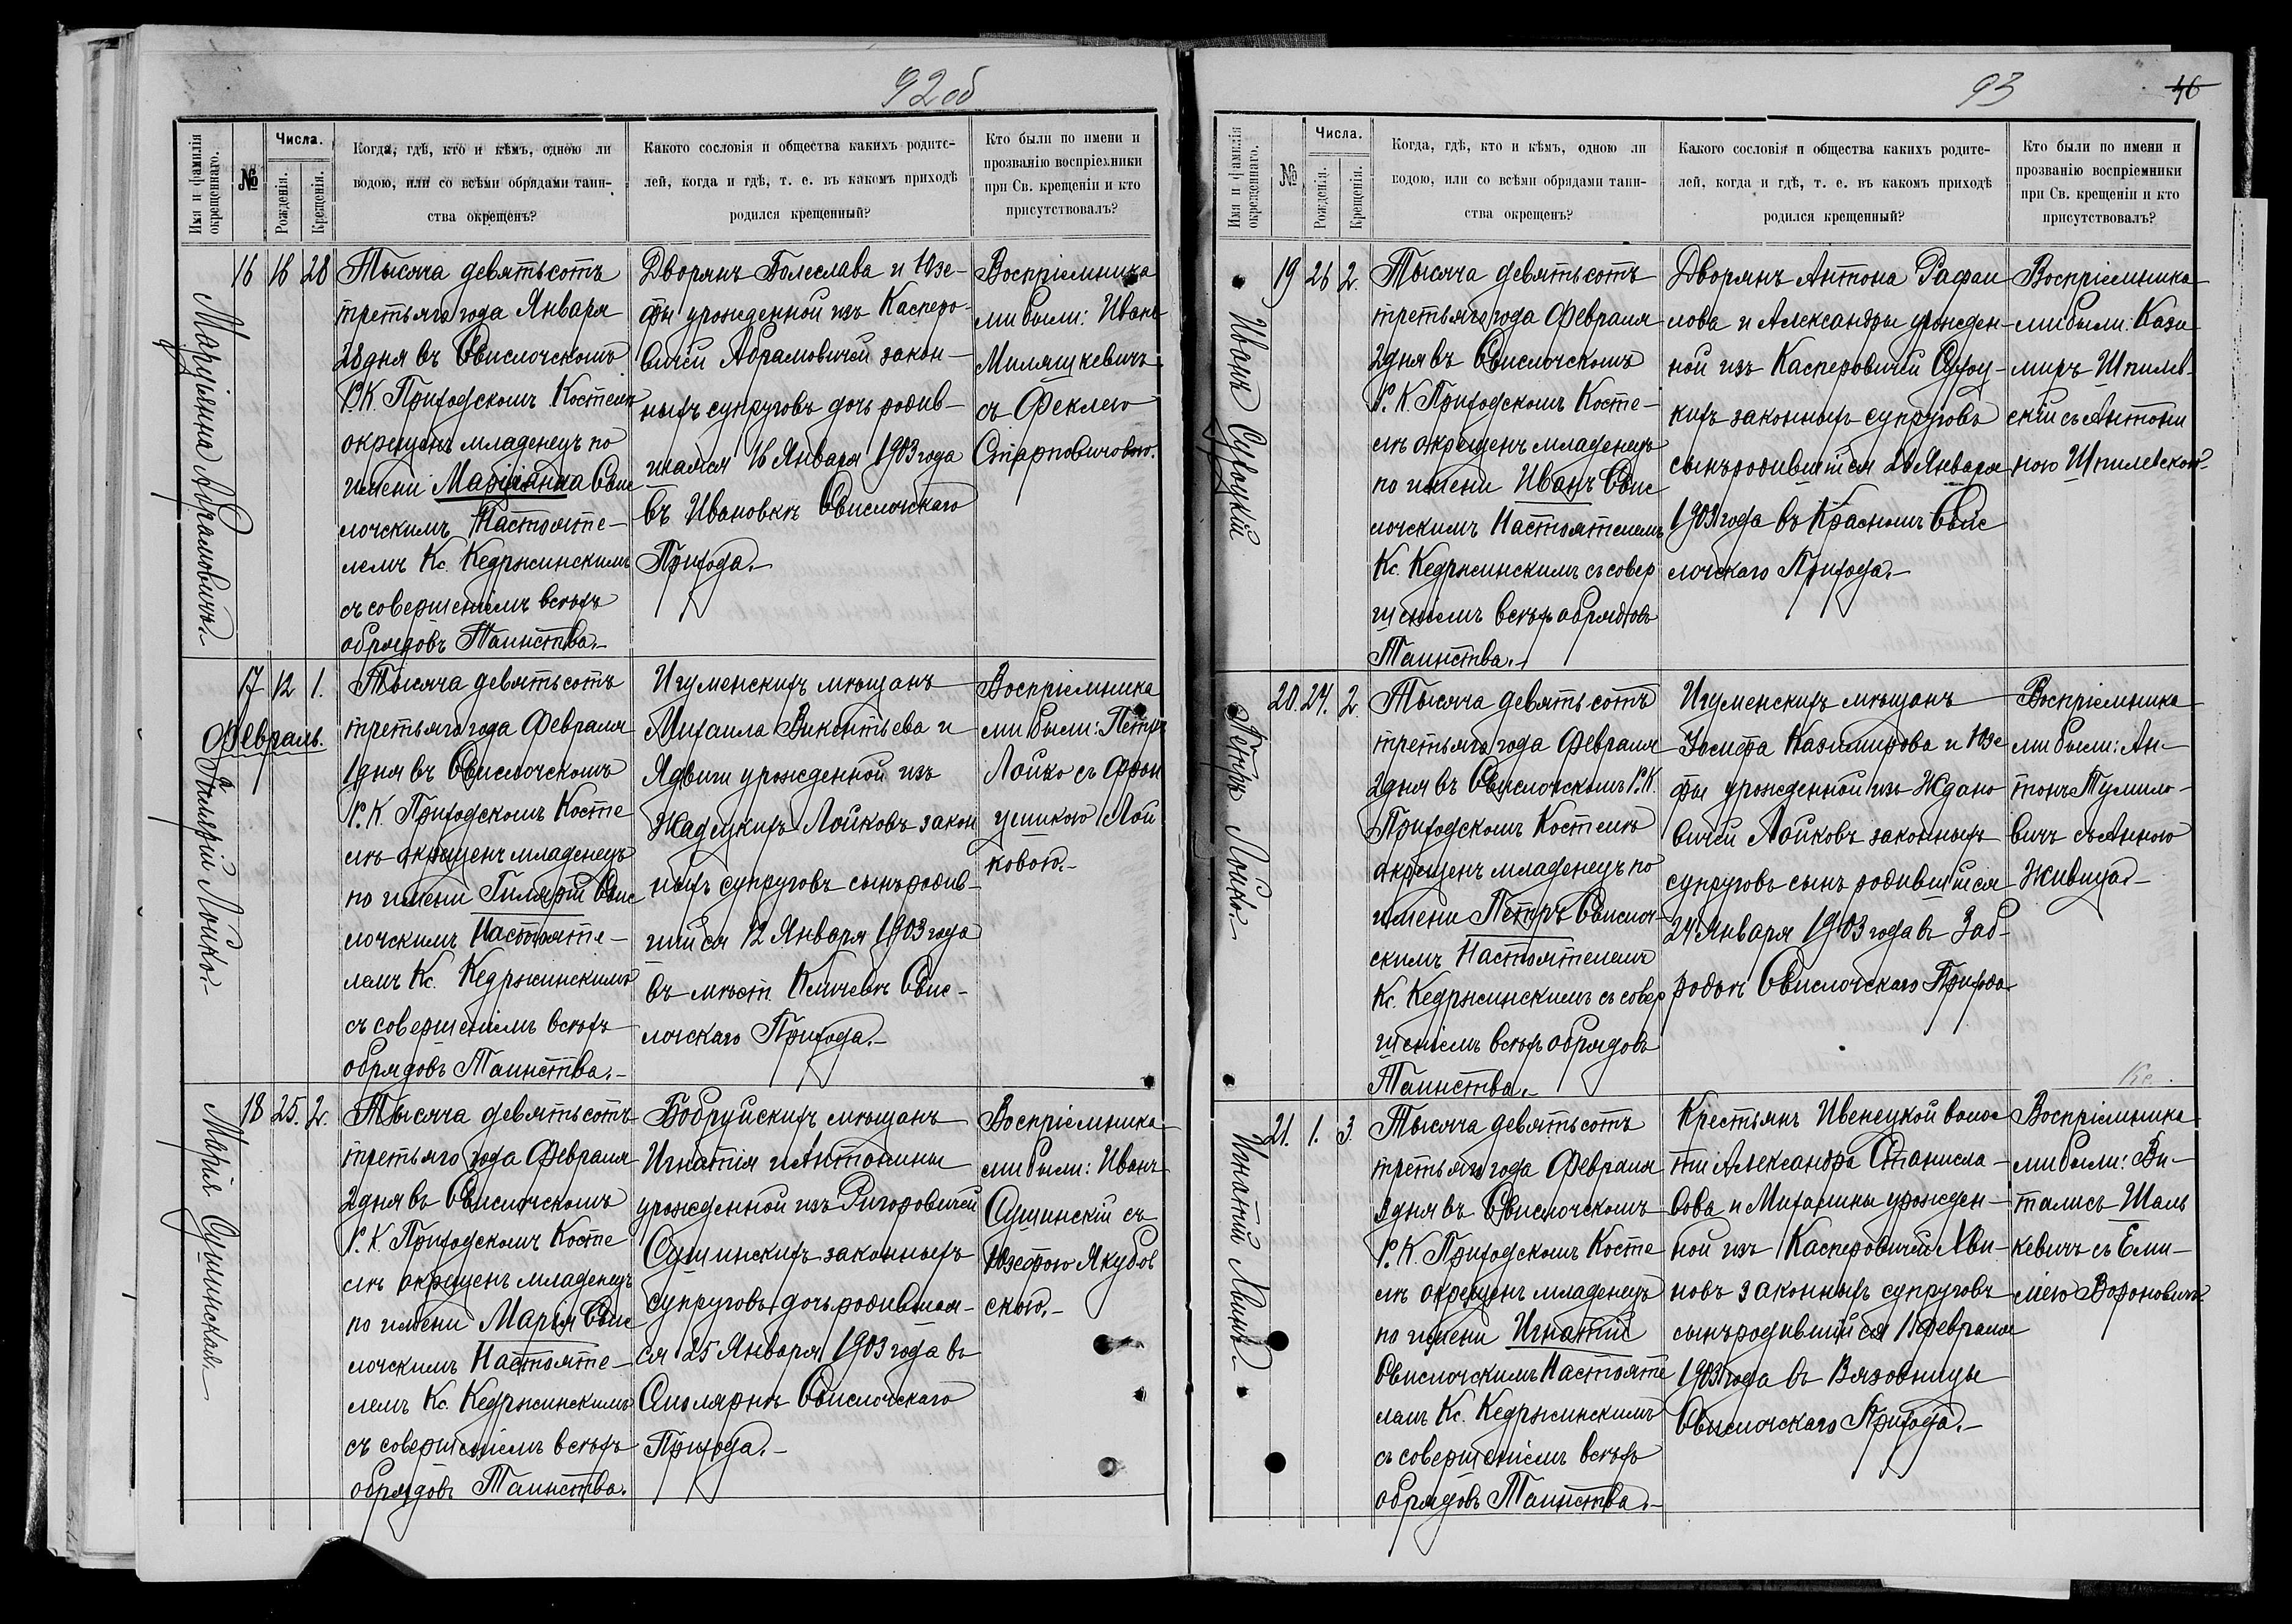 92 об
Имя и фамилія окрещеннаго.
№
Числа.
Рожденія.
Крещенія.
Когда, гдѣ, кто и кѣмъ, одною ли
водою, или со всѣми обрядами таин-
ства окрещенъ?
Какого сословія и общества какихъ родите-
лей, когда и гдѣ, т. е. въ какомъ приходѣ
родился крещенный?
Кто были по имени и
прозванію воспріемники
при Св. крещеніи и кто
присутствовалъ?
Марціянна Абрамовичъ.
16 16 28
Тысяча девятьсотъ
третьяго года Января
28 дня въ Свислочскомъ
Р. К. Приходскомъ Костелѣ
окрещенъ младенецъ по
имени Марціянна Свис
лочскимъ Настояте-
лемъ Кс. Кедржинскимъ
съ совершеніемъ всѣхъ
обрядовъ Таинства.
Дворянъ Болеслава и Юзе-
фы урожденной изъ Касперо-
вичей Абрамовичей закон-
ныхъ супруговъ дочь родив-
шаяся 16 Января 1903 года
въ Ивановкѣ Свислочскаго
Прихода.
Воспріемника
ми были: Иванъ
Миляшкевичъ
съ Феклею
Старповичовою.
Февраль.
Гилярій Лойко.
17 12 1.
Тысяча девятьсотъ
третьяго года Февраля
1 дня въ Свислочскомъ
Р. К. Приходскомъ Косте
лѣ окрещенъ младенецъ
по имени Гилярій Свис
лочскимъ Настояте-
лемъ Кс. Кедржинскимъ
съ совершеніемъ всѣхъ
обрядовъ Таинства.
Игуменскихъ мѣщанъ
Михаила Викентьева и
Ядвиги урожденной изъ
Лойковъ закон
ныхъ супруговъ сынъ родив-
шійся 12 Января 1903 года
въ мѣст. Кличевѣ Свис-
лочскаго Прихода.
Воспріемника
ми были: Петръ
Лойко съ Фран
цишкою Лой
ковою.
Марія Сушинская.
18 25. 2.
Тысяча девятьсотъ
третьяго года Февраля
2 дня въ Свислочскомъ
Р. К. Приходскомъ Косте
лѣ окрещенъ младенецъ
по имени Марія Свис
лочскимъ Настояте-
лемъ Кс. Кедржинскимъ
съ совершеніемъ всѣхъ
обрядовъ Таинства.
Бобруйскихъ мѣщанъ
Игнатія и Антонины
урожденной изъ Ригоровичей
Сушинскихъ законныхъ
супруговъ дочь родившая-
ся 25 Января 1903 года въ
Смолярнѣ Свислочскаго
Прихода.
Воспріемника
ми были: Иванъ
Сушинскій съ
Юзефою Якубов
скою.
93
46
Имя и фамилія окрещеннаго.
№
Числа.
Рожденія.
Крещенія.
Когда, гдѣ, кто и кѣмъ, одною ли
водою, или со всѣми обрядами таин-
ства окрещенъ?
Какого сословія и общества какихъ родите-
лей, когда и гдѣ, т. е. въ какомъ приходѣ
родился крещенный?
Кто были по имени и
прозванію воспріемники
при Св. крещеніи и кто
присутствовалъ?
Иванъ Сухоцкій
19 26 2.
Тысяча девятьсотъ
третьяго года Февраля
2 дня въ Свислочскомъ
Р. К. Приходскомъ Косте-
лѣ окрещенъ младенецъ
по имени Иванъ Свис
лочскимъ Настоятелемъ
Кс. Кедржинскимъ съ совер
шеніемъ всѣхъ обрядовъ
Таинства.
Дворянъ Антона Рафаи
лова и Александры урожден-
ной изъ Касперовичей Сухоц-
кихъ законныхъ супруговъ
сынъ родившійся 26 Января
1903 года въ Красномъ Свис
лочскаго Прихода.
Воспріемника
ми были: Кази
миръ Шпилев-
скій съ Антони
ною Шпилевскою.
Петръ Лойко.
20. 24. 2.
Тысяча девятьсотъ
третьяго года Февраля
2 дня въ Свислочскомъ Р. К.
Приходскомъ Костелѣ
окрещенъ младенецъ по
имени Петръ Свислоч-
скимъ Настоятелемъ
Кс. Кедржинскимъ съ совер
шеніемъ всѣхъ обрядовъ
Таинства.
Игуменскихъ мѣщанъ
Іосифа Казимирова и Юзе
фы урожденной изъ Ждано
вичей Лойковъ законныхъ
супруговъ сынъ родившійся
24 Января 1903 года въ Заб-
родьѣ Свислочскаго Прихода
Воспріемника
ми были: Ан-
тонъ Тумило-
вичъ съ Анною
Кс.
Игнатій Лвинъ.
21. 1. 3.
Тысяча девятьсотъ
третьяго года Февраля
3 дня въ Свислочскомъ
Р. К. Приходскомъ Косте
лѣ окрещенъ младенецъ
по имени Игнатій
Свислочскимъ Настояте
лемъ Кс. Кедржинскимъ
съ совершеніемъ всѣхъ
обрядовъ Таинства.
Крестьянъ Ивенецкой волос
ти Александра Станисла-
вова и Михалины урожден-
ной изъ Касперовичей Лви-
новъ законныхъ супруговъ
сынъ родившійся 1 Февраля
1903 года въ Вязовницы
Свислочскаго Прихода.
Воспріемника
ми были: Ви-
талисъ Шаль
кевичъ съ Еми-
ліею Вороновичъ